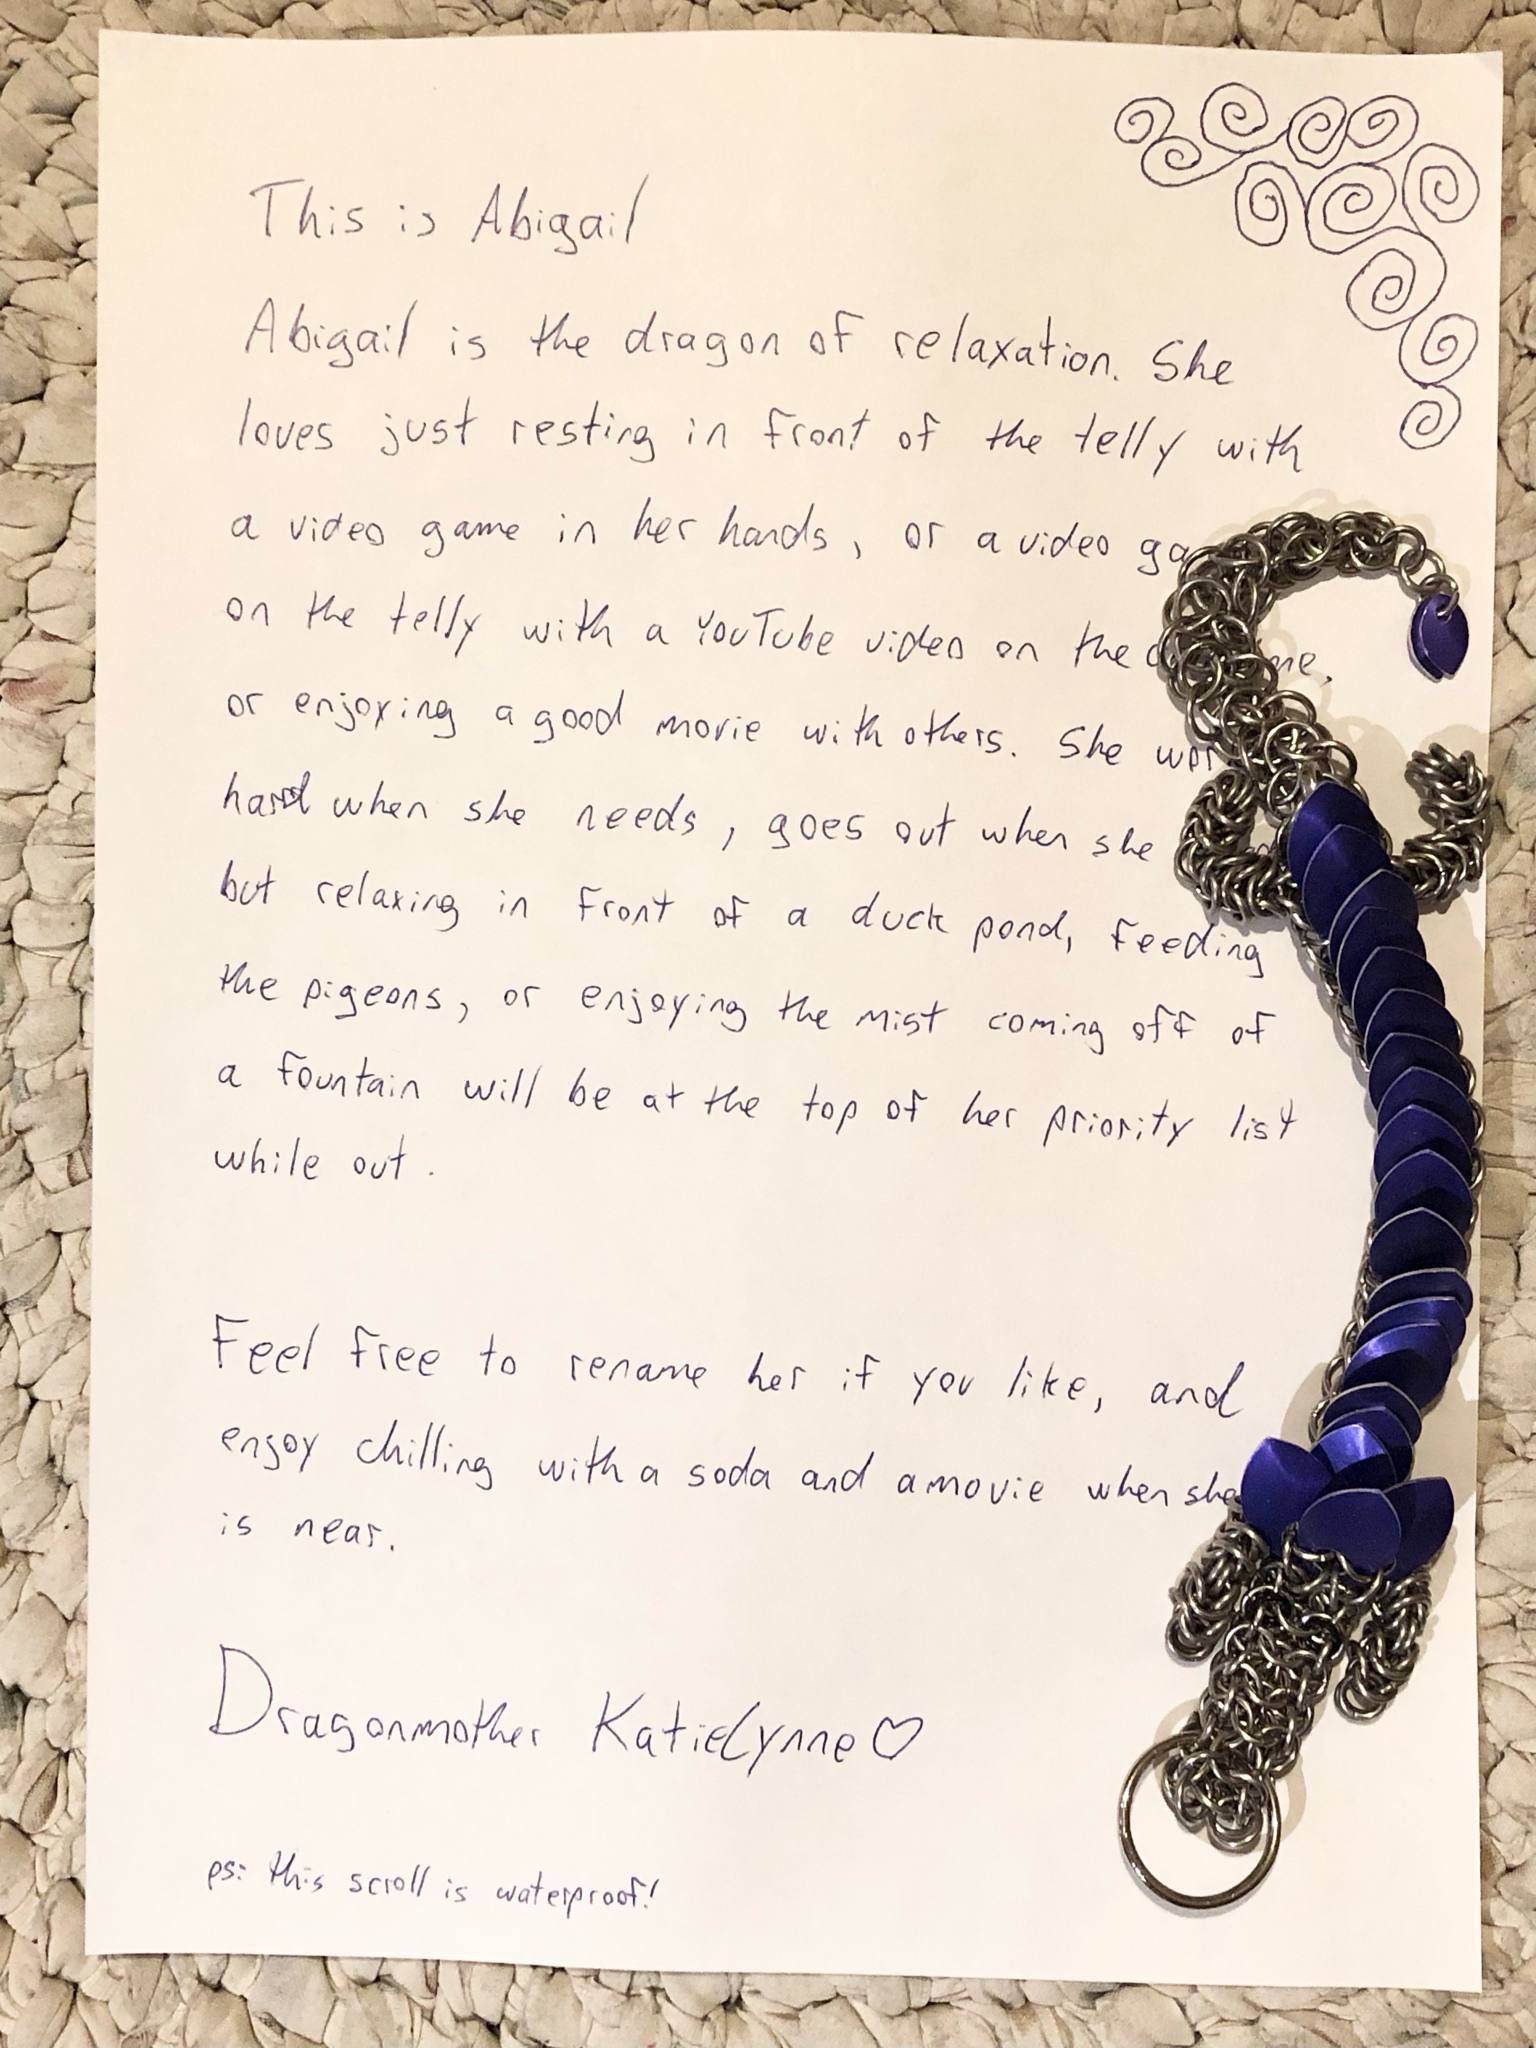 This is Abigail
Abigail is the dragon of relaxation. She
loves just resting in front of the telly with
a video game in her hands, or a video ga
on the telly with a YouTube video on the ne,
or enjoying a good movie with others. She wor
hard when she needs, goes out when she
but relaxing in front of a duck pond, feeding
the pigeons, or enjoying the mist coming off of
a fountain will be at the top of her priority list
while out.
Feel free to rename her if you like, and
enjoy chilling with a soda and a movie when she
is near.
Dragonmother KatieLynne♡
ps: this scroll is waterproof!